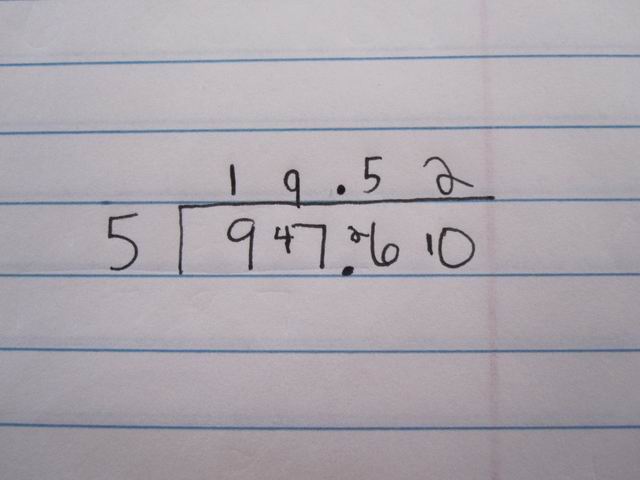 19.52
5 947.2610